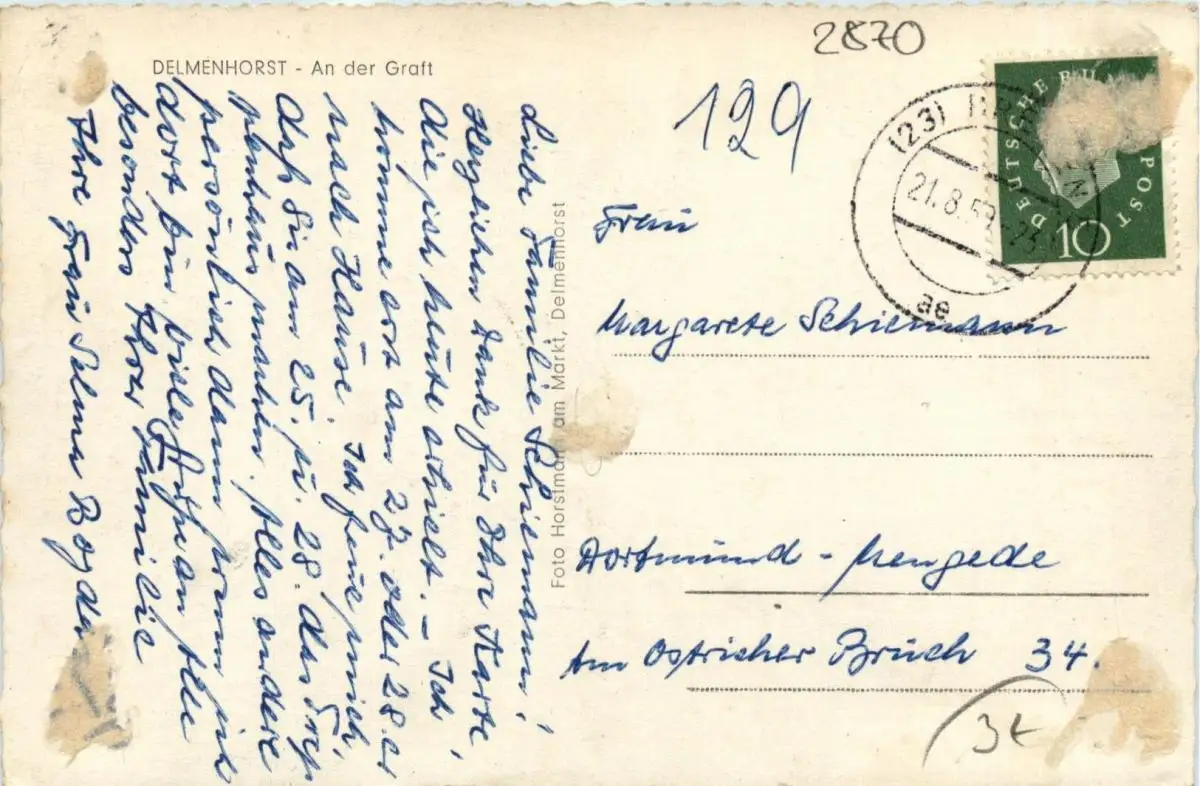 2870
DELMENHORST - An der Graft
129
DEUTSCHE BU POST
10
(23) BREMEN
21.8.59
ae
Foto Horstmann am Markt, Delmenhorst
Liebe Familie Schiemann!
Herzlichen Dank für Ihre Karte
die ich heute erhielt. – Ich
komme erst am 27. oder 28. er
nach Hause. Ich freue mich,
daß Sie am 25. zu. 28. den
machen. Alles andere
persönlich dann wenn ich
dort bin. Viele Grüße an Alle
besonders Ihrer Familie
Ihre Frau Selma
Frau
Margarete Schiemann
Dortmund - Mengede
Am Ostricher Bruch 34.
34